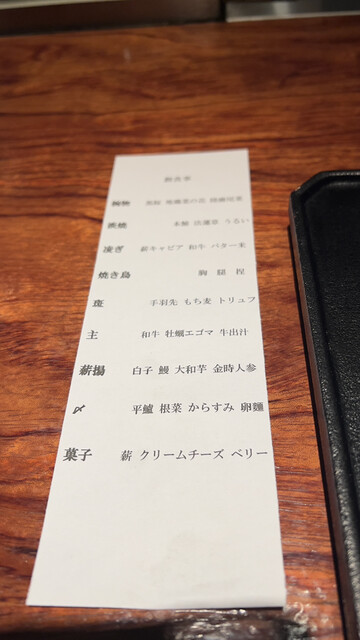 椀物
炭焼 本鮪 法蓮草 うるい
凌ぎ 薪キャビア 和牛 バター米
焼き鳥 胸 腿 捏
斑 手羽先 もち麦 トリュフ
主 和牛 牡蠣エゴマ 牛出汁
薪揚 白子 鰻 大和芋 金時人参
〆 平鱸 根菜 からすみ 卵麺
菓子 薪 クリームチーズ ベリー